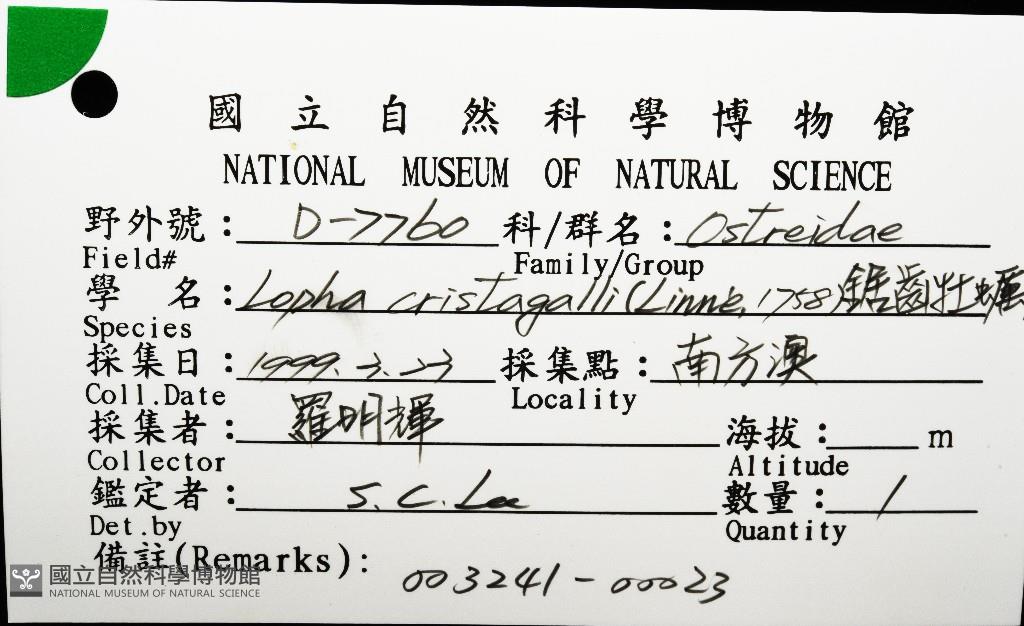 國立自然科學博物館
NATIONAL MUSEUM OF NATURAL SCIENCE
野外號：D-7760 科/群名：Ostreidae
Field# Family/Group
學名：Lopha cristagalli (Linné, 1758) 鋸齒牡蠣
Species
採集日：1999.3.23 採集點：南方澳
Coll.Date Locality
採集者：羅明輝 海拔：m
Collector Altitude
鑑定者：S.C.Lee 數量：1
Det.by Quantity
備註(Remarks)：
003241-00023
國立自然科學博物館
NATIONAL MUSEUM OF NATURAL SCIENCE